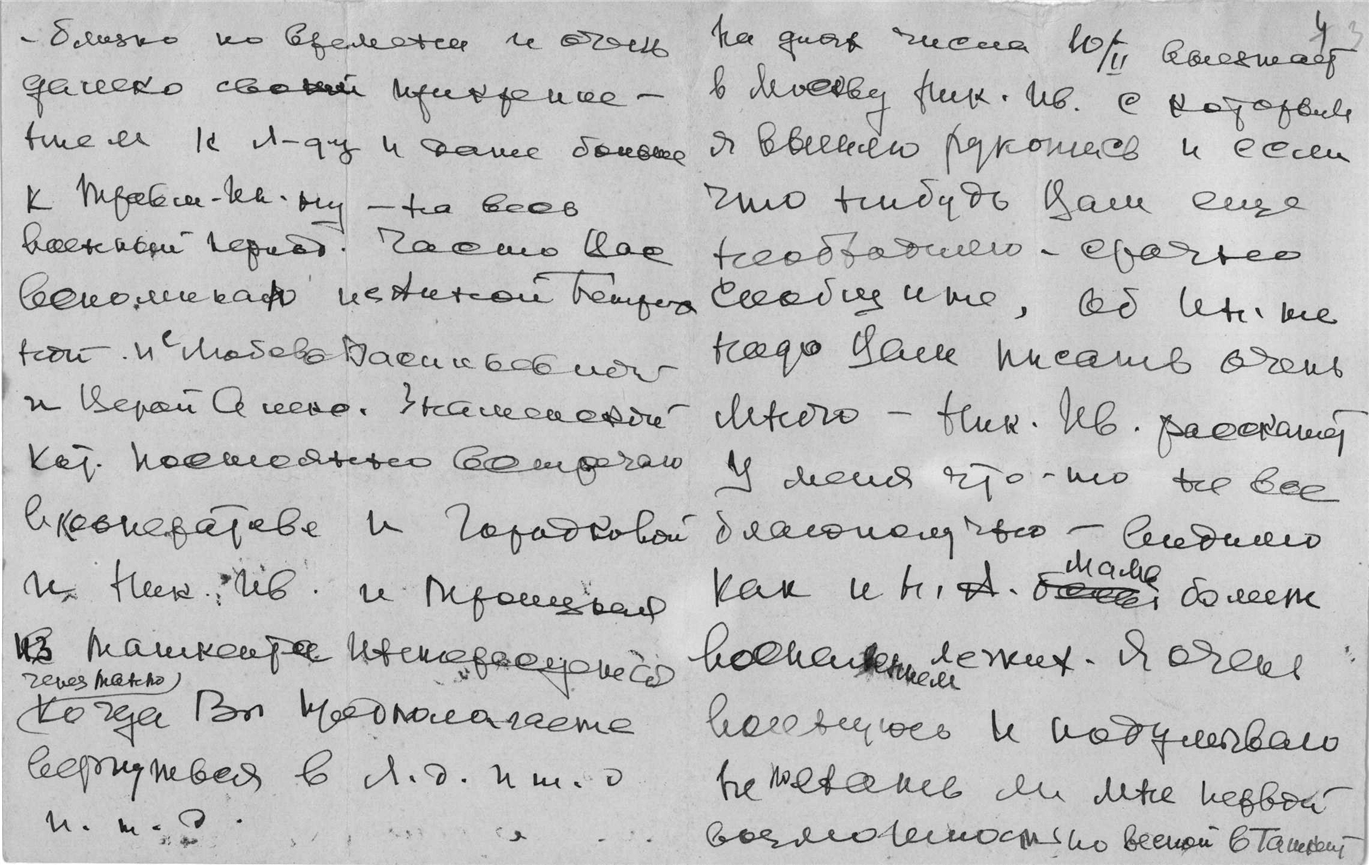 - близко по времени и очень
далеко своим прикрепле-
нием к Л-ду и даже больше
к - на весь
военный период. Часто Вас
вспоминаю и с Анной
ной и с Любовь Васильевной
и Верой Алекс. Знаменской
кот. постоянно встречаю
в кооперативе и Городковой
и Ник. Ив. и Троицкая
из Ташкента интересуется
(через Таню)
Когда Вы предполагаете
вернуться в Л.д. и т. д
и. т. д.
4
На днях числа 10/II выезжает
в Москву Ник. Ив. с которым
я вышлю рукопись и если
что нибудь Вам еще
необходимо - срочно
сообщите, об Ин-те
надо Вам писать очень
много - Ник. Ив. расскажет
У меня что-то не все
благополучно - видимо
как и Н. А. мама болеж
воспалением легких. Я очень
волнуюсь и подумываю
не поехать ли мне первой
возможностью весной в Ташкент